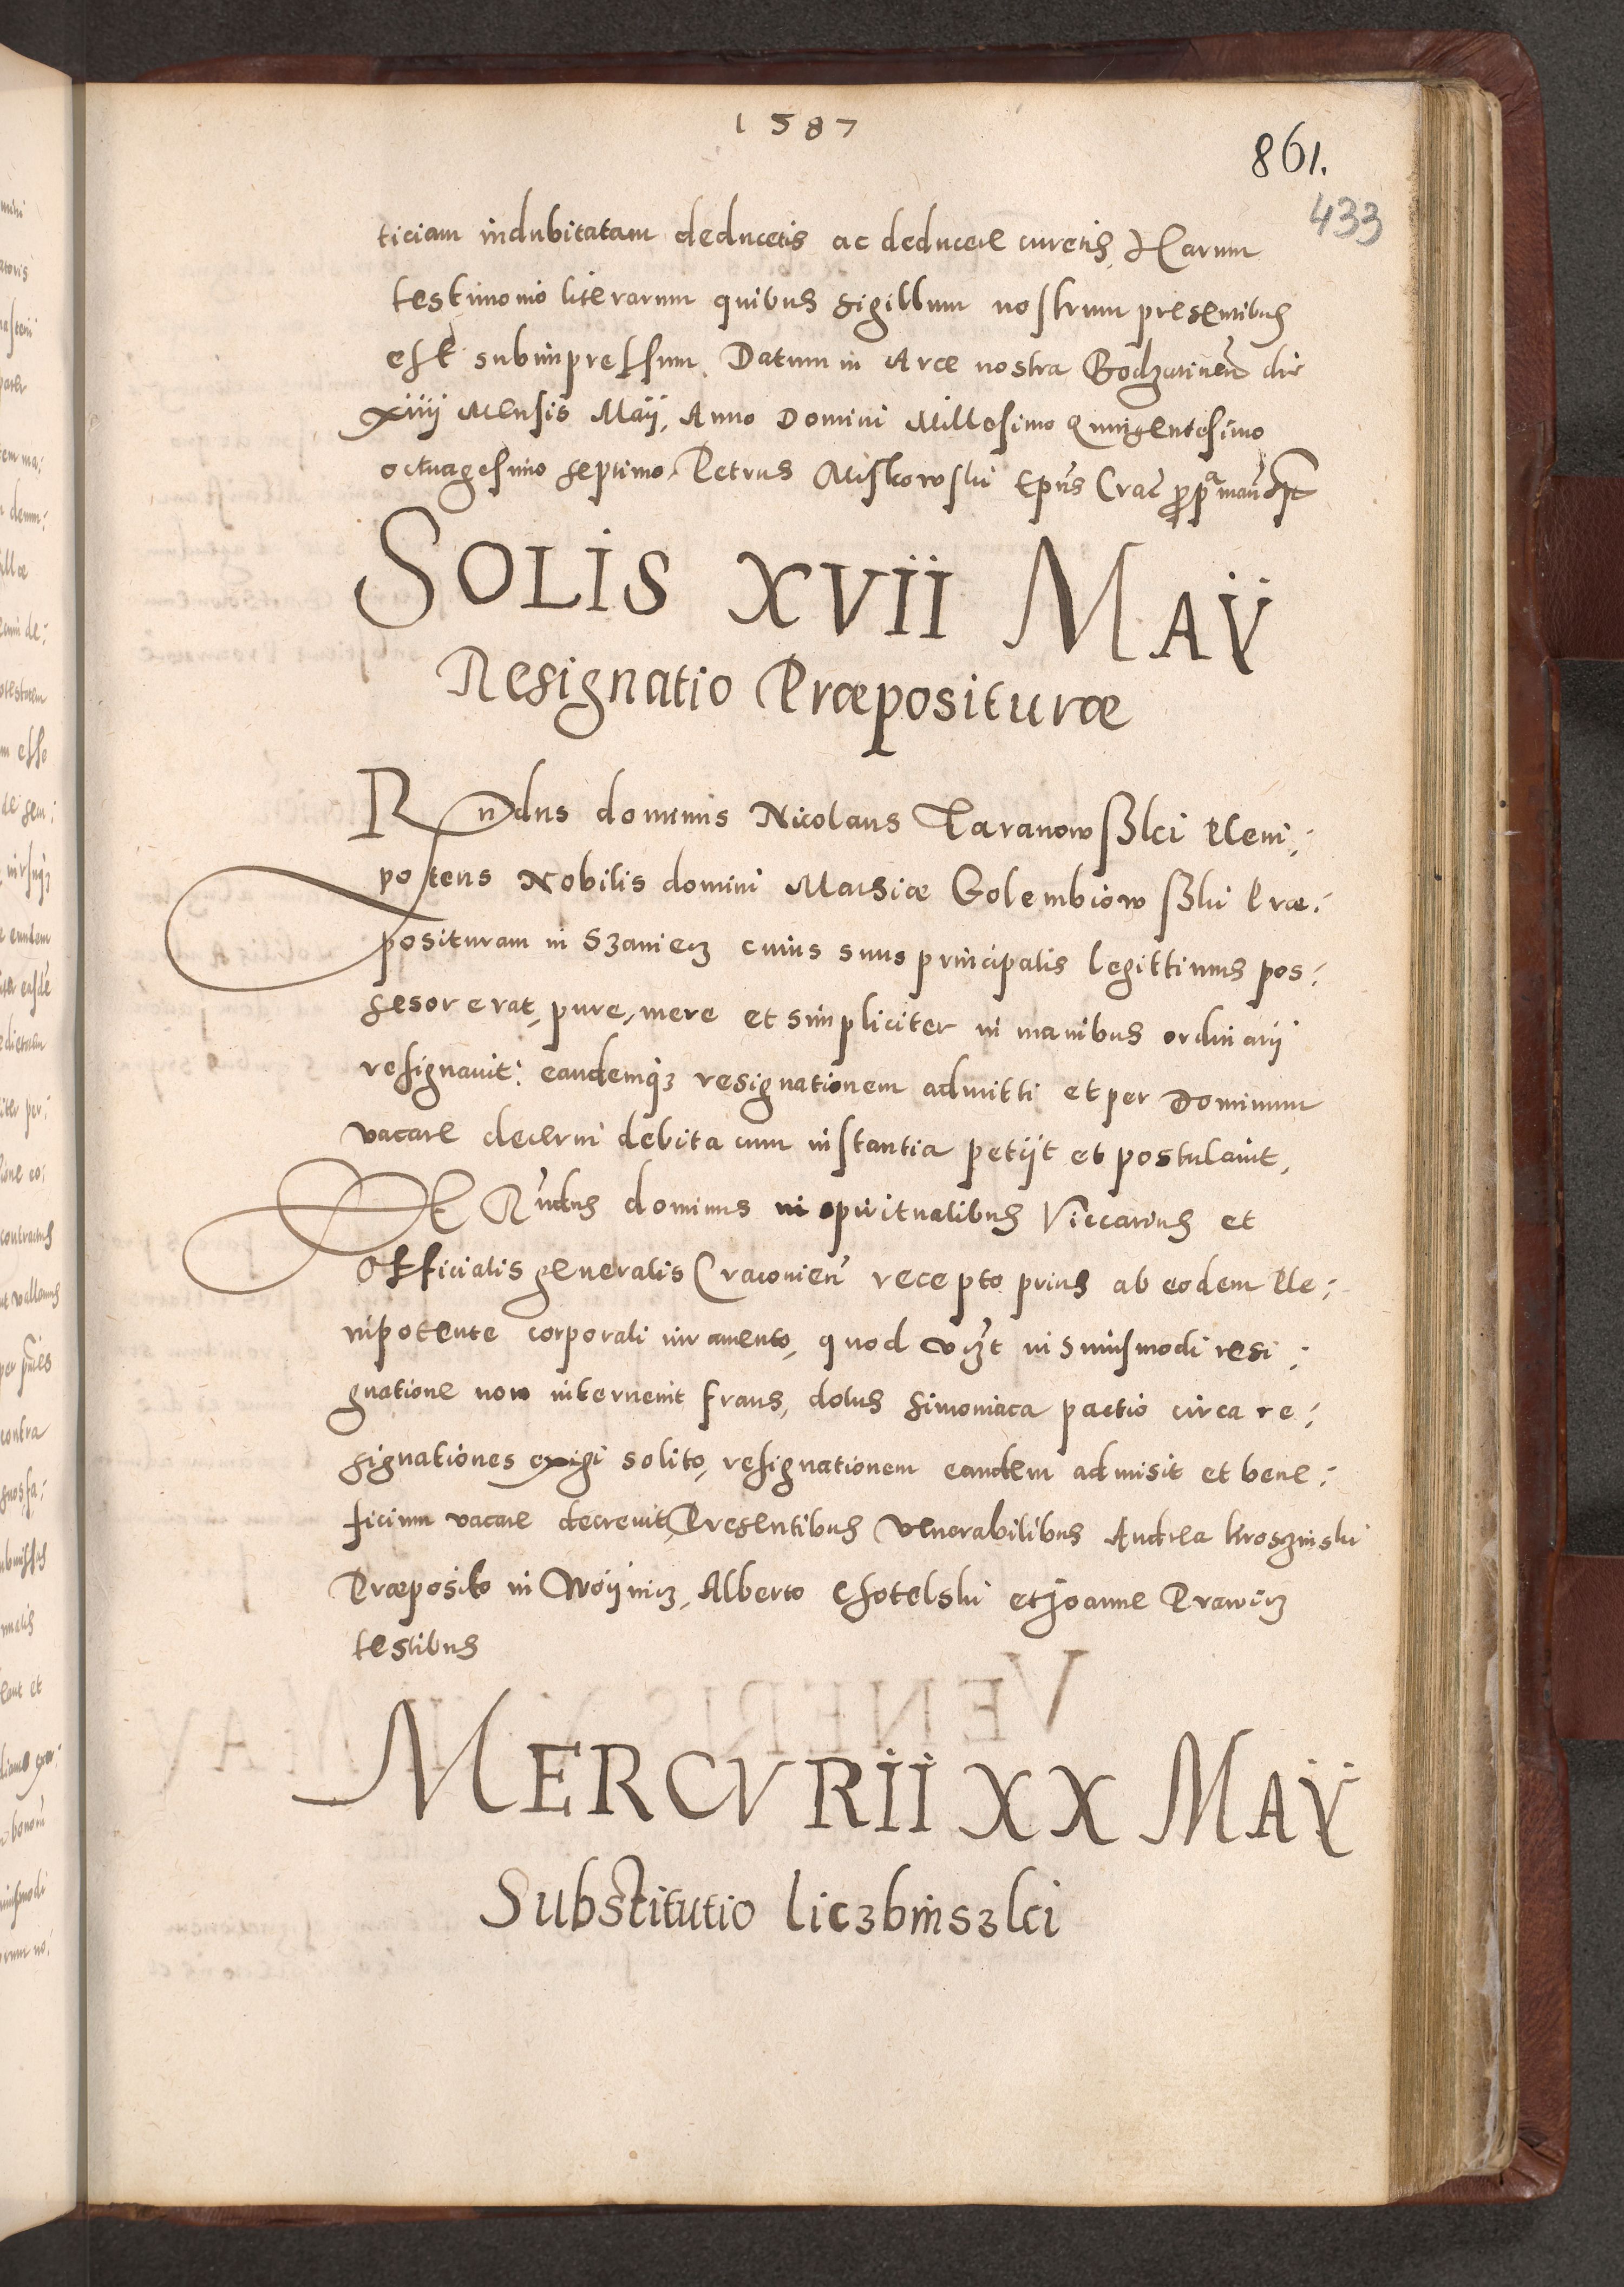 1587
861.
433
ticiam indubitatam deducetis ac deducere curetis, Harum
testimonio literarum quibus sigillum nostrum presentibus
est subimpressum. Datum in Arce nostra Bodzatinen̄ die
xiiij Mensis Maij, Anno Domini Millesimo Quingentesimo
octuagesimo septimo. Petrus Miskowski Epūs Crac̄
SOLIS XVII MAY
Resignatio Præpositurae
Rndus dominus Nicolaus Taranowsʒki Pleni:
potens Nobilis domini Mathiae Golembiowsʒki Præ:
posituram in Szaniecz cuius suus principalis legittimus pos:
sesor erat, pure, mere et simpliciter in manibus ordinarij
resignavit: eandemqʒ resignationem admitti et per Dominum
vacare decerni debita cum instantia petijt et postulavit,
Et Rn̄dus dominus in spiritualibus Viccarius et
Officialis generalis Cracovien̄ recepto prius ab eodem Ple:
nipotente corporali iuramento, quod vizt in huiusmodi resi:
gnatione non intervenit fraus, dolus simoniaca pactio circa re:
signationes exigi solito, resignationem eandem admisit et bene:
ficium vacare decrevit, Presentibus Venerabilibus Andrea Kroszinski
Præposito in Woijnicz, Alberto Chotelski et Joanne Prawicz
testibus
MERCVRII XX MAY
Substitutio Liczbinszki